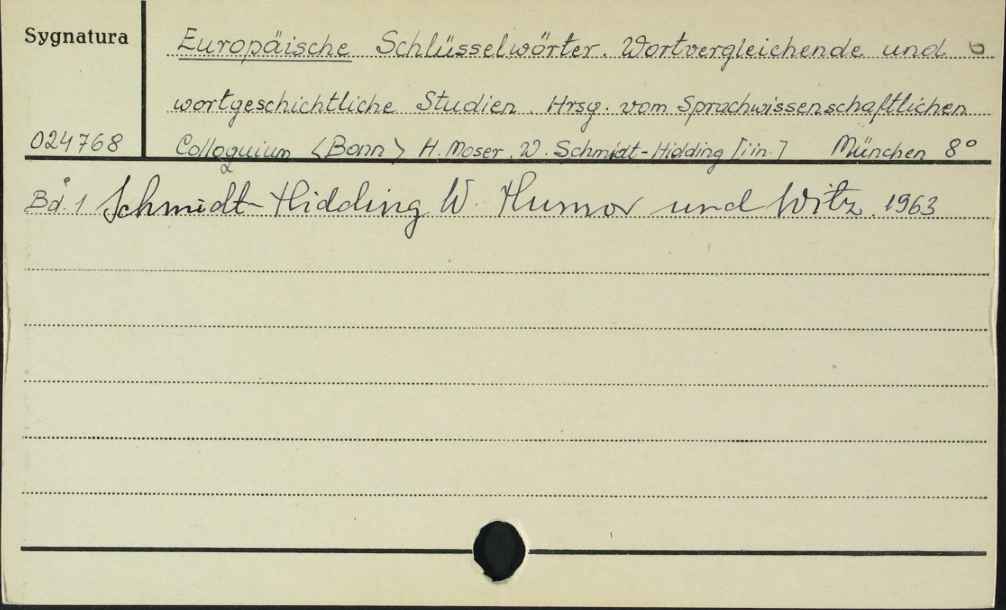 Sygnatura
Europäische Schlüsselwörter. Wortvergleichende und
wortgeschichtliche Studien. Hrsg. vom Sprachwissenschaftlichen
024768 Colloquium <Bonn> H. Moser, W. Schmidt-Hidding [i in.] München 8°
Bd. 1 Schmidt-Hidding W. Humor und Witz. 1963